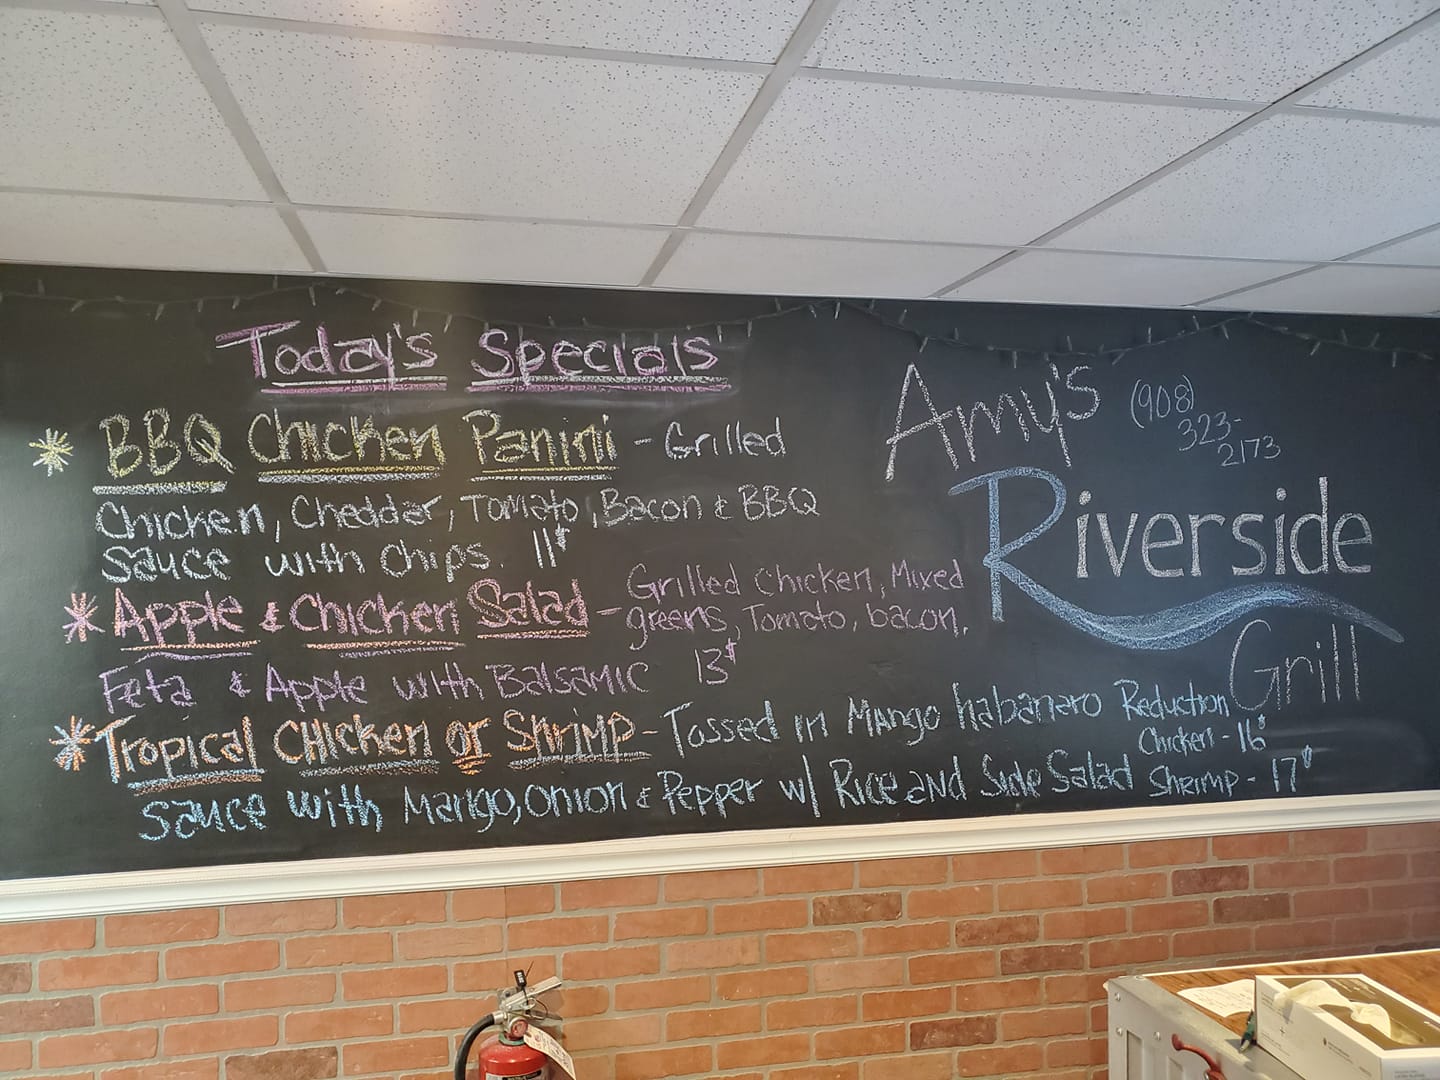 Today's Specials
* BBQ Chicken Panini - Grilled
Chicken, Cheddar, Tomato, Bacon & BBQ
Sauce with chips. 11$
* Apple & Chicken Salad - Grilled Chicken, Mixed
greens, Tomato, bacon,
Feta & Apple with Balsamic 13$
* Tropical Chicken or Shrimp - Tossed in Mango habanaro Reduction
Sauce with Mango, Onion & Pepper w/ Rice and Side Salad
Chicken - 16$
Shrimp - 17$
Amy's
(908)
323-
2173
Riverside
Grill